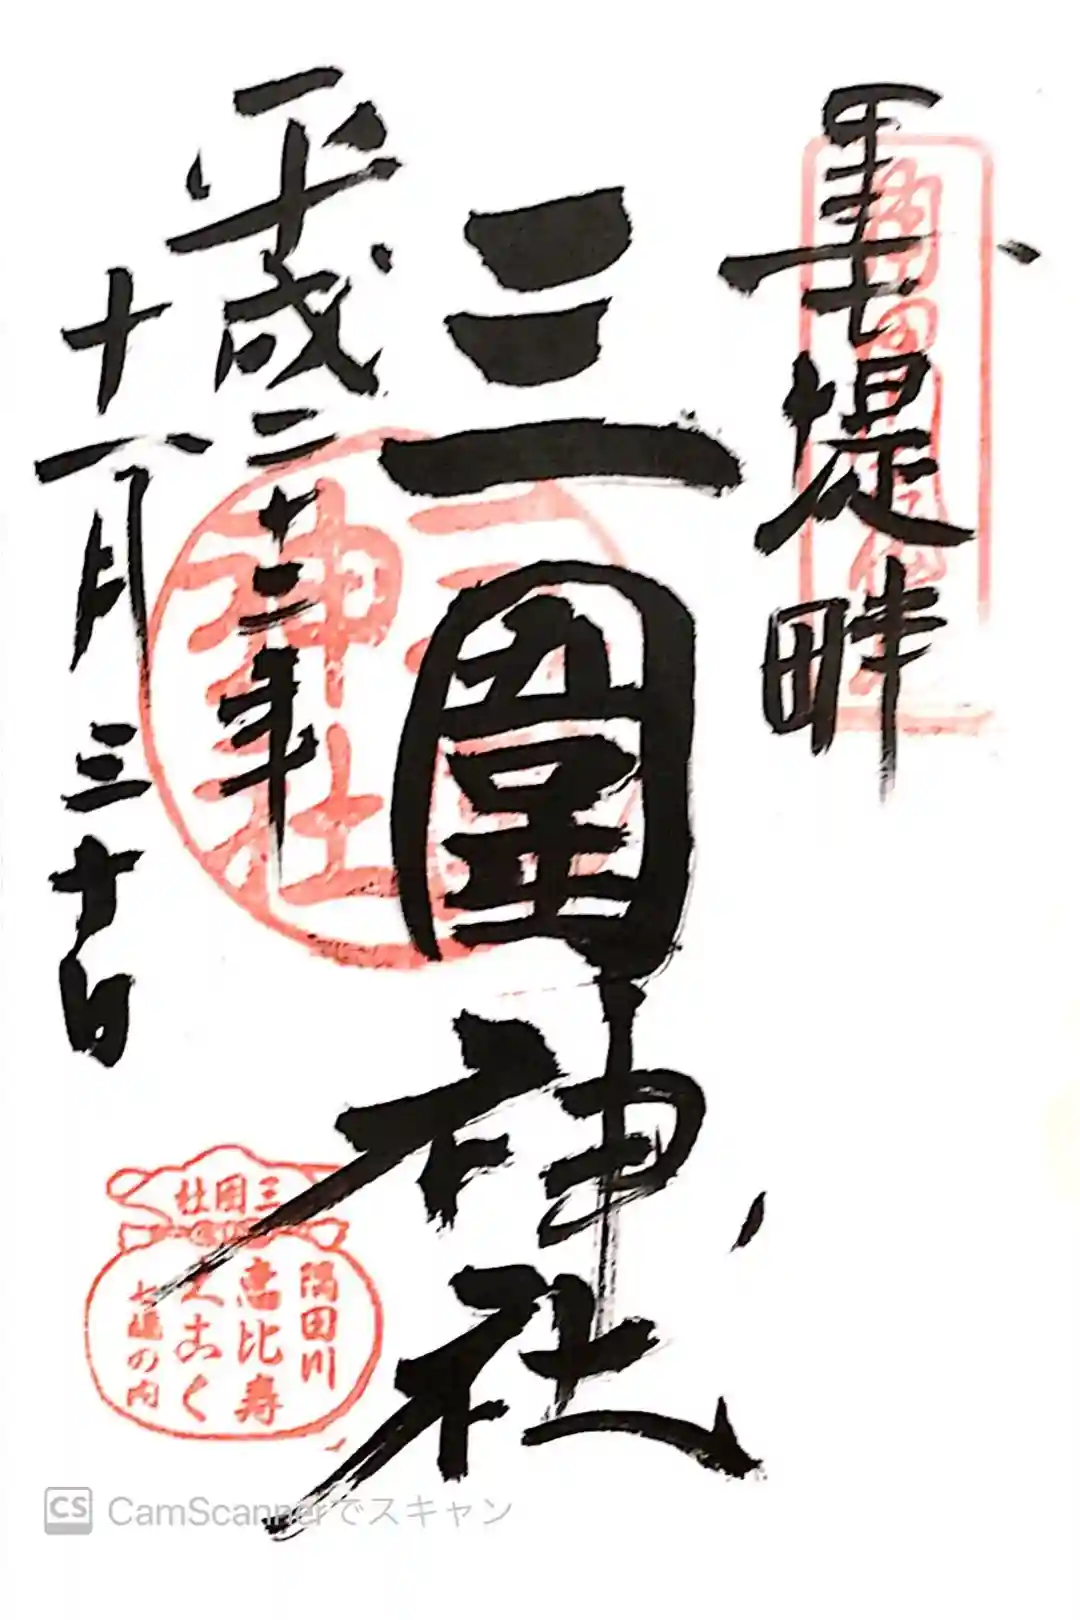 墨堤畔
三圍神社
平成二十三年
十一月三十日
三圍神社
三囲社
隅田川
恵比寿
大こく
七福の内
CS CamScannerでスキャン